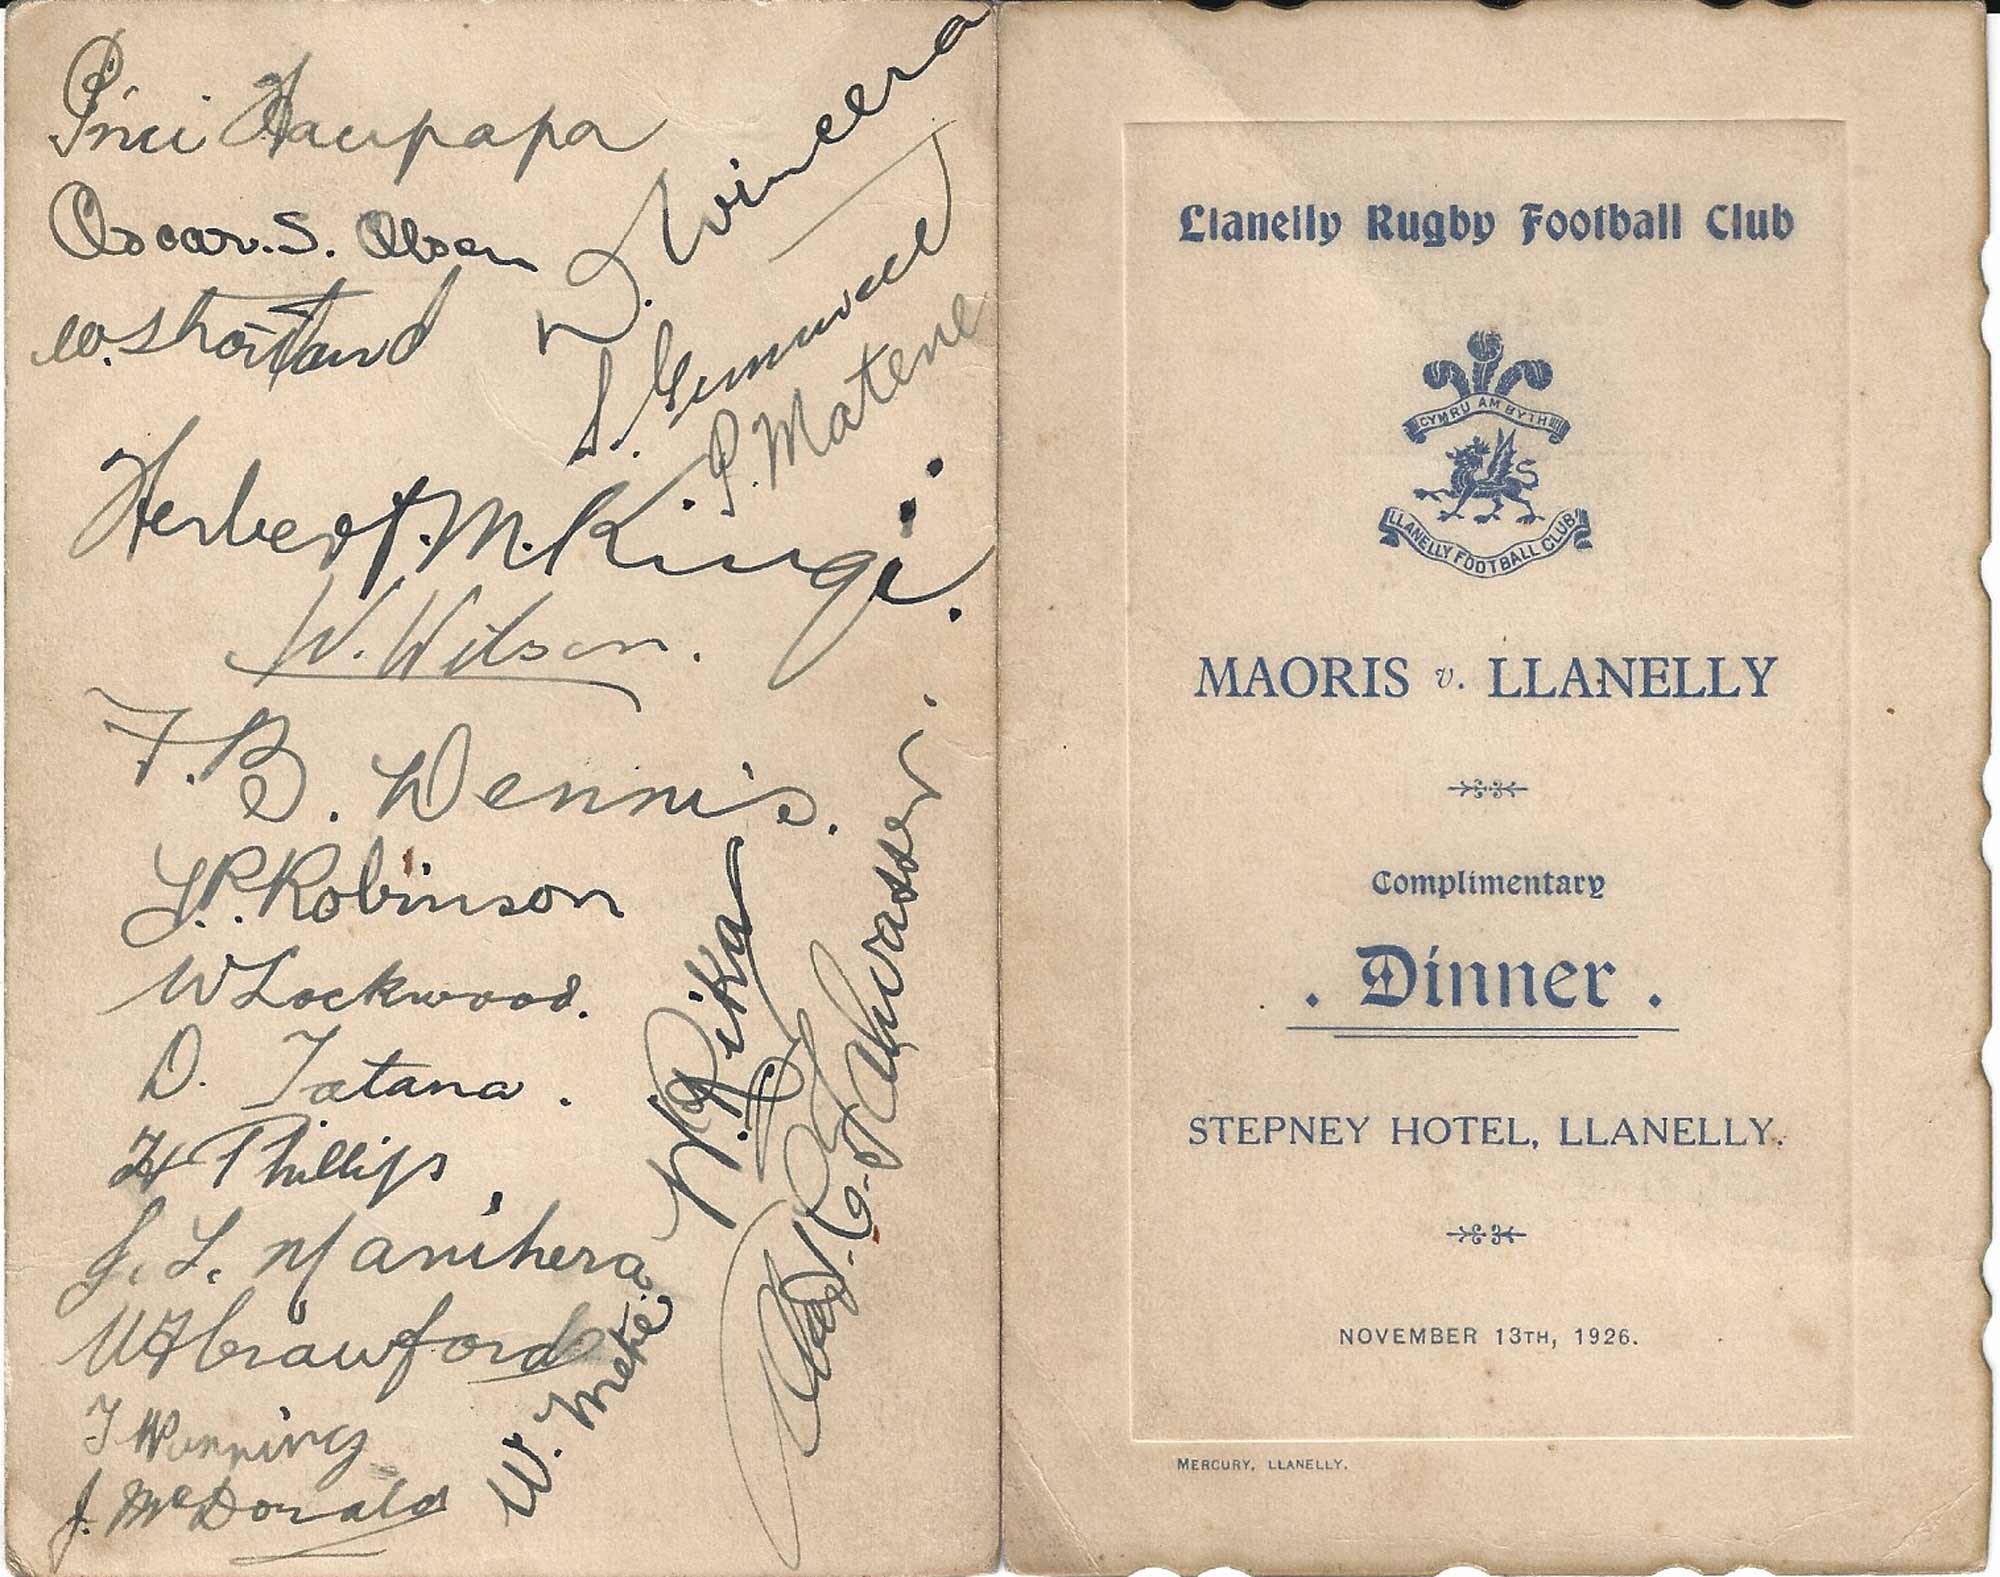 Pirici Haupapa
Oscar. S. Olsen
W. Shortland
D. Wineera
S. Gemmell
P. Matene
Herbert. M. Kingi.
W. Wilson.
F. B. Dennis.
J. P. Robinson
W Lockwood.
D. Tatana.
H Phillips,
J. L. Manihera
W H Crawford
T Manning
J. McDonald
W. Meke.
W. P. Rika
Llanelly Rugby Football Club
CYMRU AM BYTH
LLANELLY FOOTBALL CLUB
MAORIS v. LLANELLY
Complimentary
. Dinner .
STEPNEY HOTEL, LLANELLY.
NOVEMBER 13TH, 1926.
MERCURY, LLANELLY.